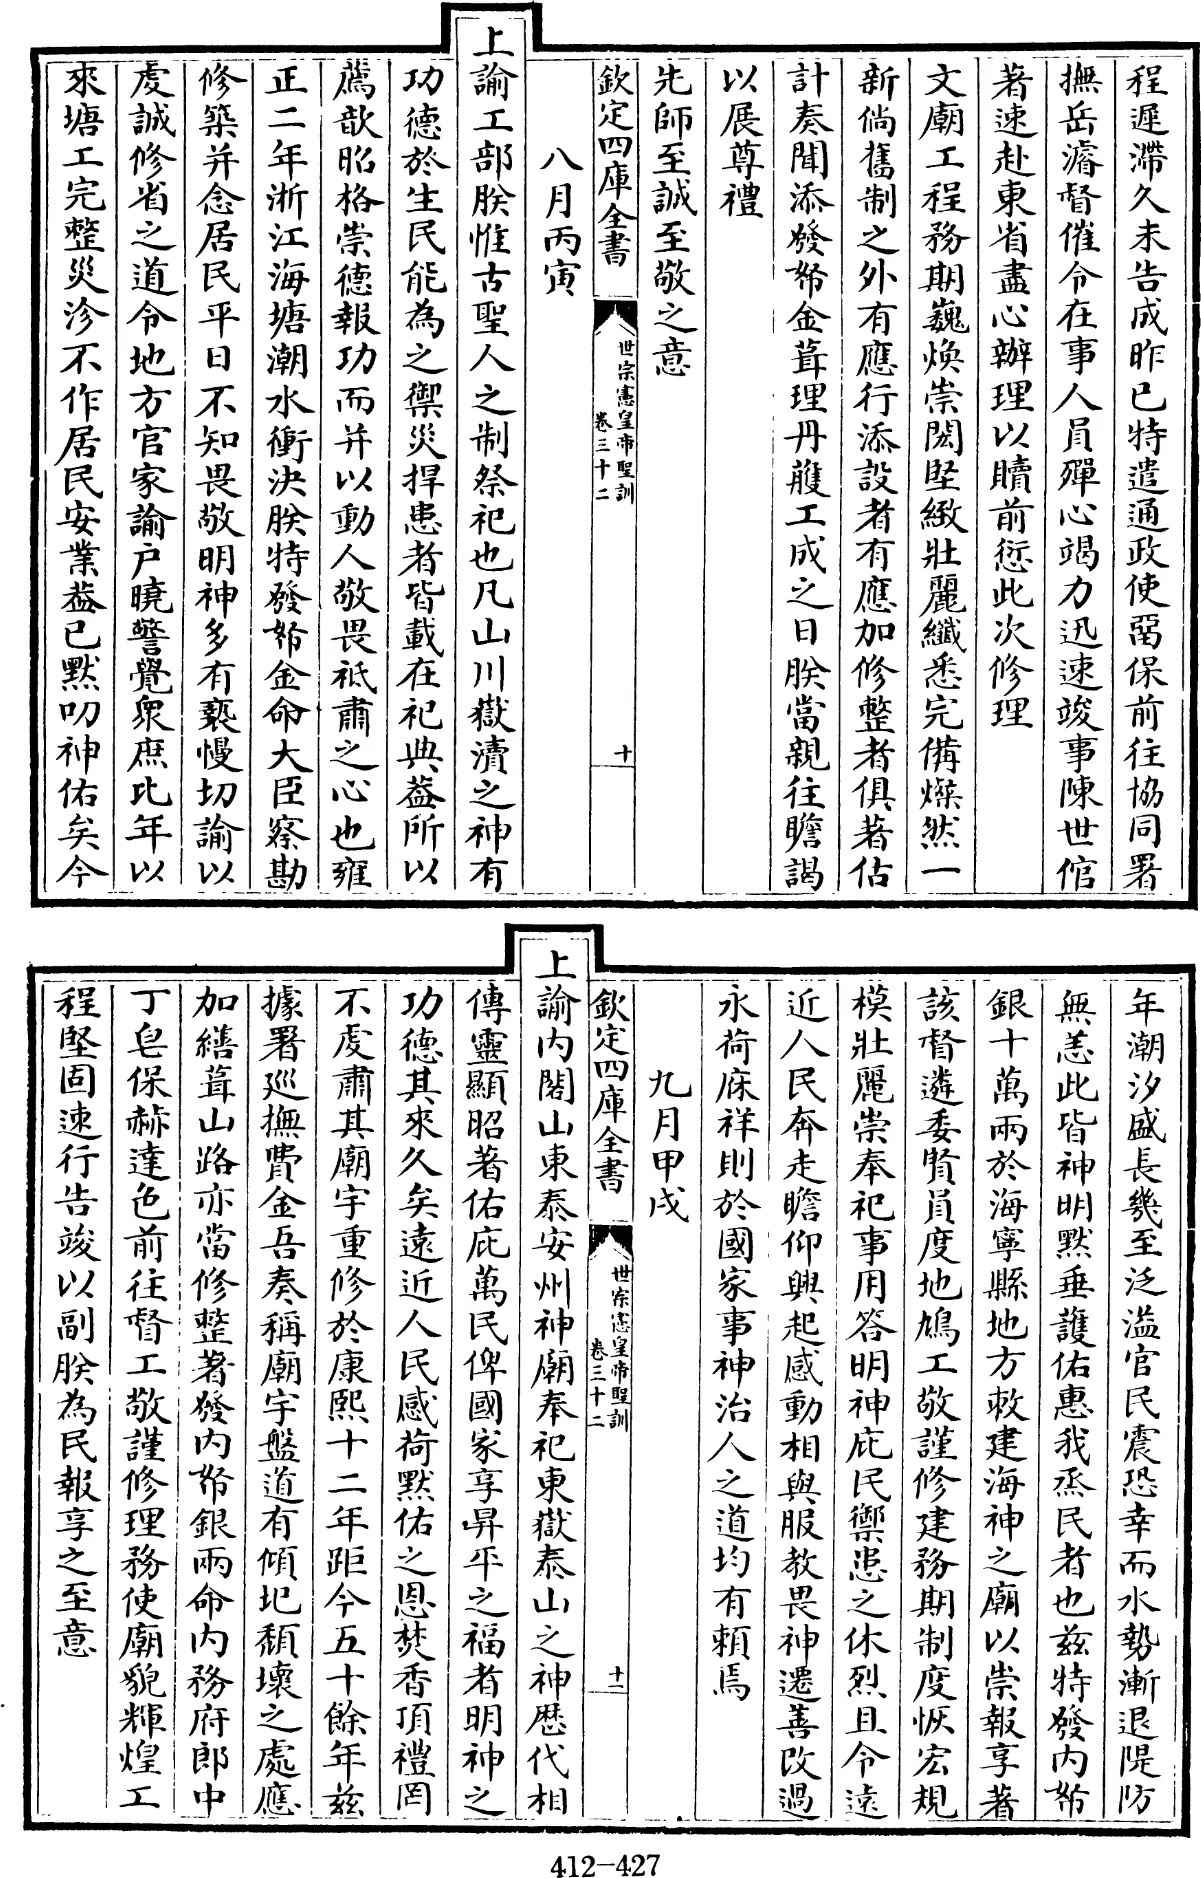 程遲滯久未告成昨已特遣通政使畱保前往協同署
撫岳濬督催令在事人員殫心竭力迅速竣事陳世倌
著速赴東省盡心辦理以贖前愆此次修理
文廟工程務期巍煥崇閎堅緻壯麗纖悉完備燦然一
新倘舊制之外有應行添設者有應加修整者俱著估
計奏聞添發帑金葺理丹雘工成之日朕當親往瞻謁
以展尊禮
先師至誠至敬之意
欽定四庫全書
世宗憲皇帝聖訓
卷三十二
十
八月丙寅
上諭工部朕惟古聖人之制祭祀也凡山川嶽瀆之神有
功德於生民能為之禦災捍患者皆載在祀典葢所以
薦歆昭格崇德報功而并以動人敬畏祗肅之心也雍
正二年浙江海塘潮水衝決朕特發帑金命大臣察勘
修築并念居民平日不知畏敬明神多有褻慢切諭以
䖍誠修省之道令地方官家諭户曉警覺衆庶比年以
來塘工完整災沴不作居民安業葢已默叨神佑矣今
年潮汐盛長幾至泛溢官民震恐幸而水勢漸退隄防
無恙此皆神明默垂護佑惠我烝民者也兹特發内帑
銀十萬兩於海寧縣地方敕建海神之廟以崇報享著
該督遴委賢員度地鳩工敬謹修建務期制度恢宏規
模壯麗崇奉祀事用答明神庇民禦患之休烈且令遠
近人民奔走瞻仰興起感動相與服教畏神遷善改過
永荷庥祥則於國家事神治人之道均有賴焉
九月甲戌
欽定四庫全書
世宗憲皇帝聖訓
卷三十二
十一
上諭内閣山東泰安州神廟奉祀東嶽泰山之神歷代相
傳靈顯昭著佑庇萬民俾國家享昇平之福者明神之
功德其來久矣遠近人民感荷默佑之恩焚香頂禮罔
不䖍肅其廟宇重修於康熙十二年距今五十餘年兹
據署巡撫費金吾奏稱廟宇盤道有傾圮頽壞之處應
加繕葺山路亦當修整著發内帑銀兩命内務府郎中
丁皂保赫達色前往督工敬謹修理務使廟貌輝煌工
程堅固速行告竣以副朕為民報享之至意
412-427